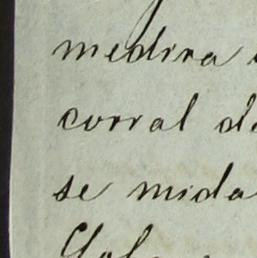 medira
corral de
se mida